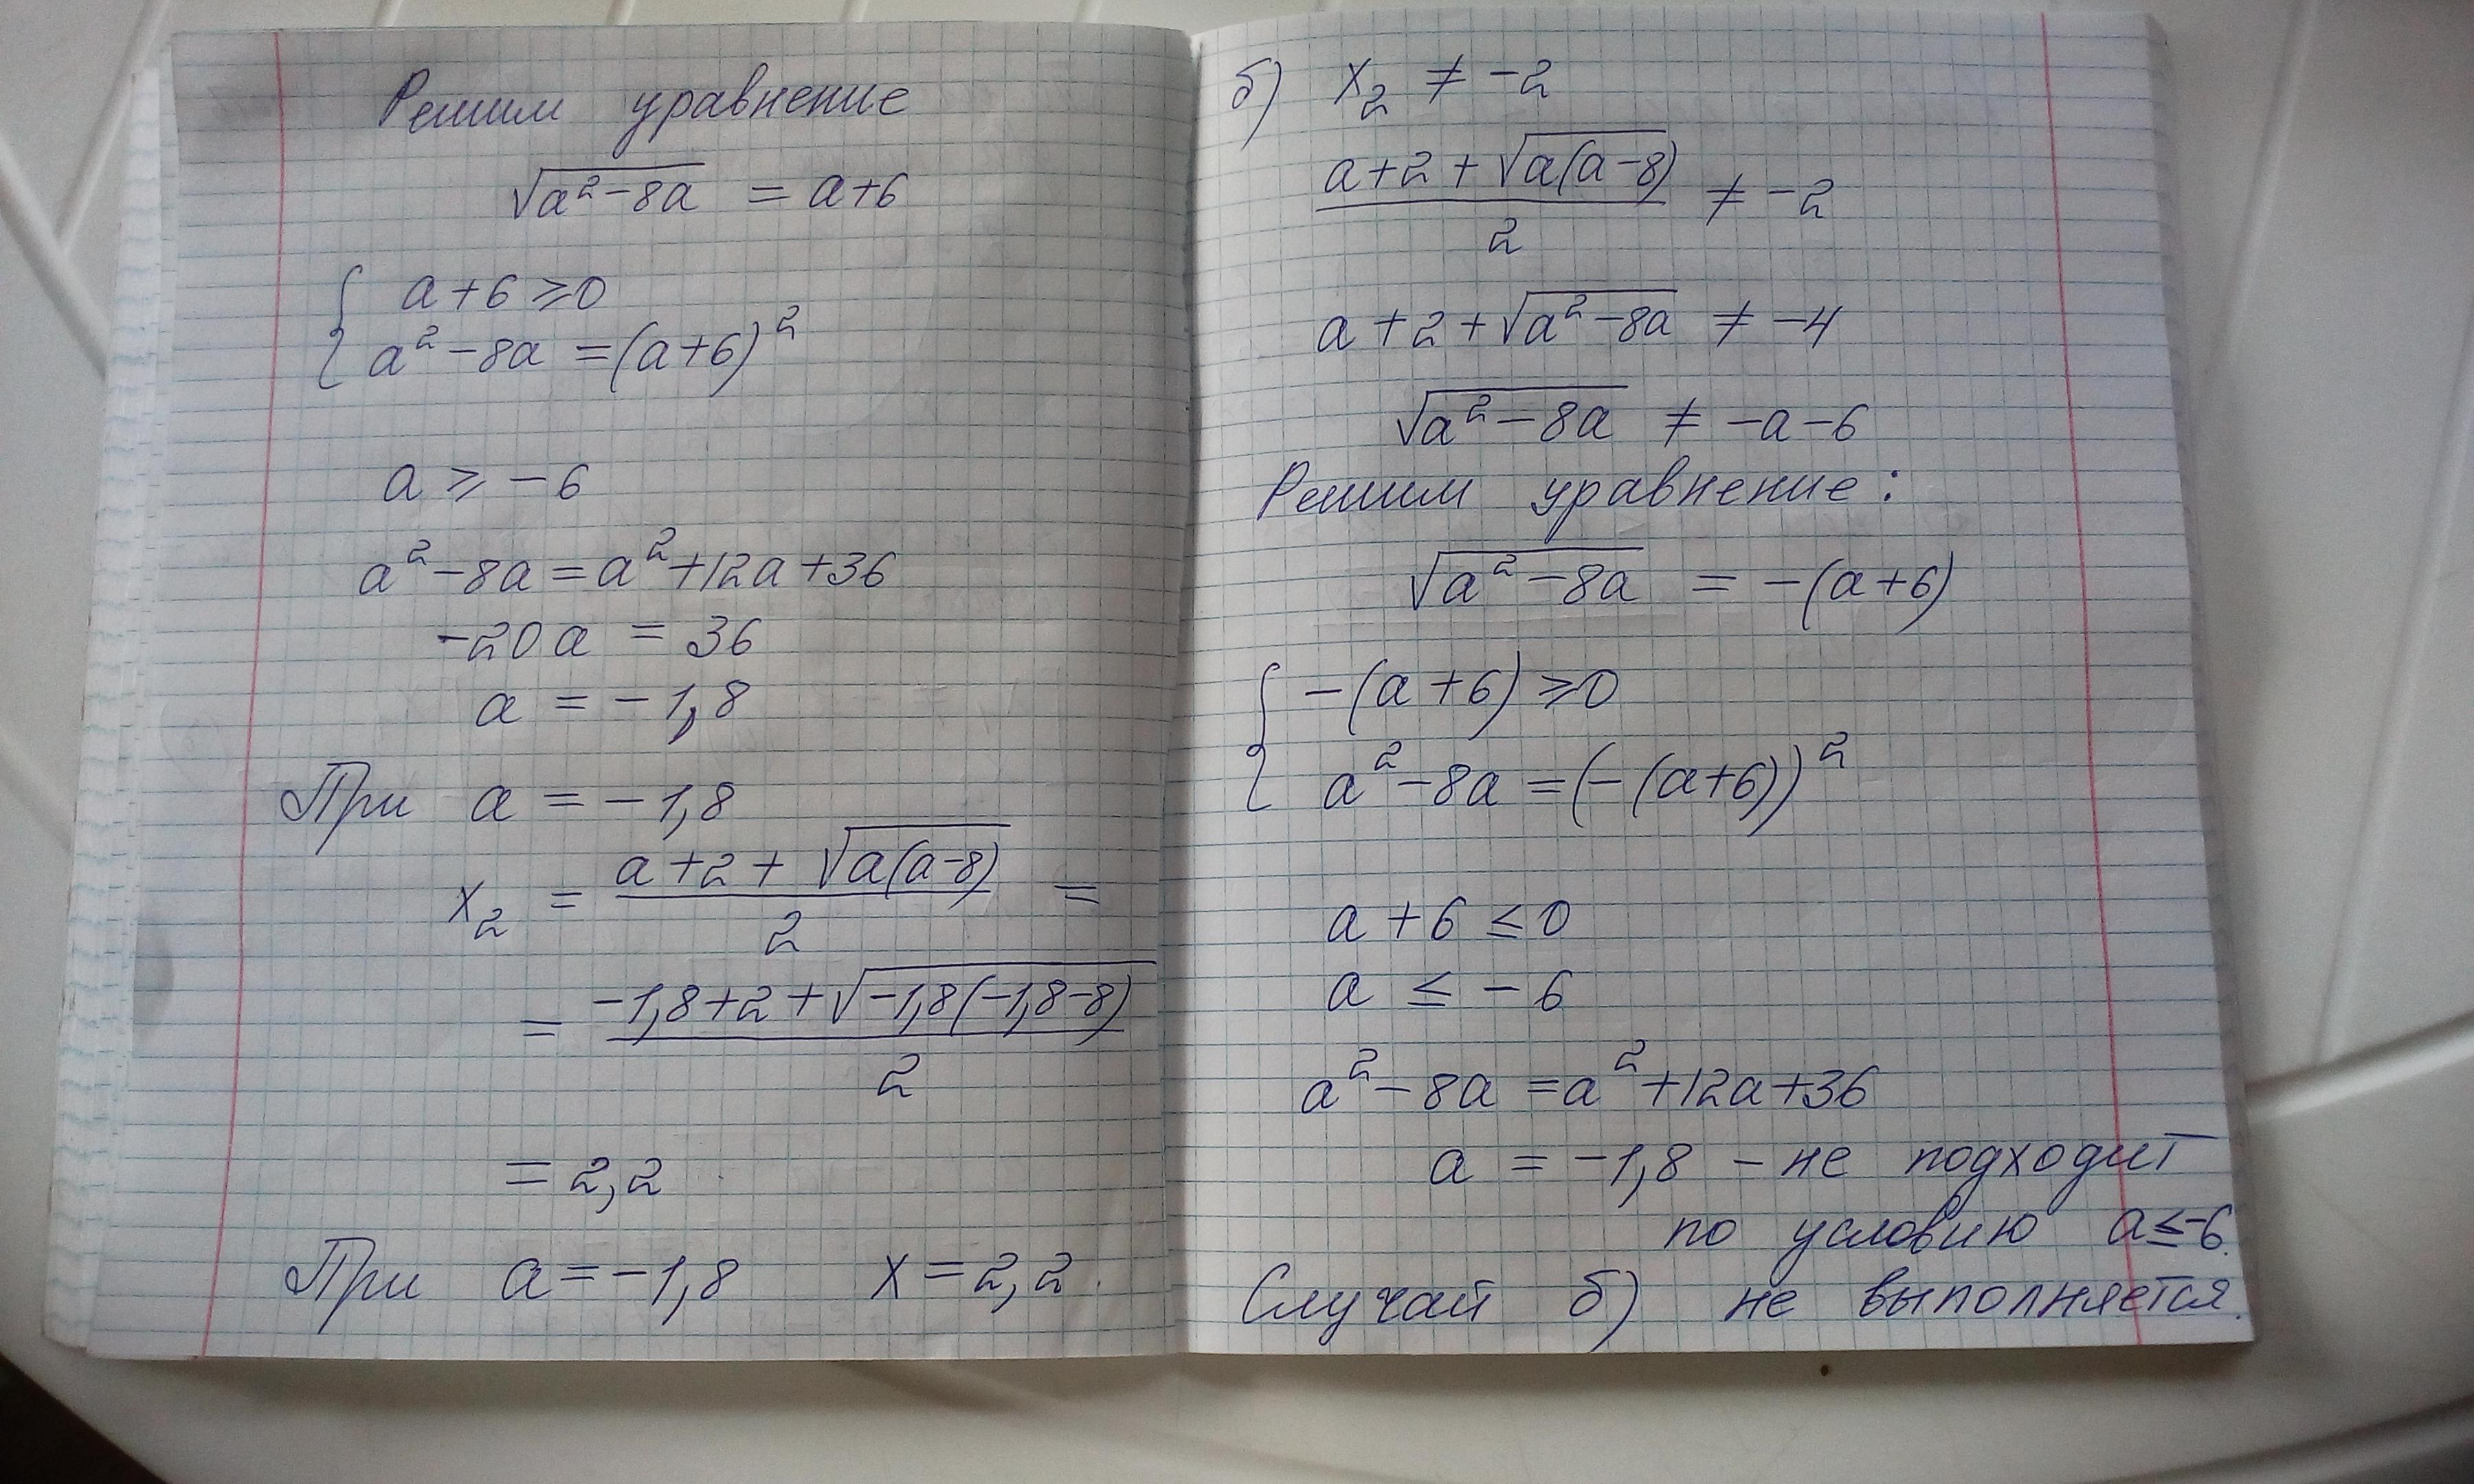 Решим уравнение
√(a²-8a) = a+6
{ a+6 ⩾ 0
a²-8a = (a+6)²
a ⩾ -6
a²-8a = a²+12a+36
-20a = 36
a = -1,8
При a = -1,8
x₂ = (a+2+√(a(a-8)))/2 =
= (-1,8+2+√(-1,8(-1,8-8)))/2
= 2,2
При a = -1,8 x = 2,2.
б) x₂ ≠ -2
(a+2+√(a(a-8)))/2 ≠ -2
a+2+√(a²-8a) ≠ -4
√(a²-8a) ≠ -a-6
Решим уравнение:
√(a²-8a) = -(a+6)
{ -(a+6) ⩾ 0
a²-8a = (-(a+6))²
a+6 ≤ 0
a ≤ -6
a²-8a = a²+12a+36
a = -1,8 - не подходит
по условию a≤-6.
Случай б) не выполняется.